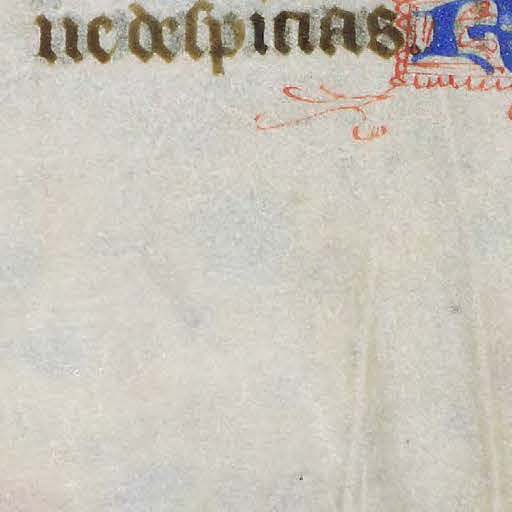 ne despicias.